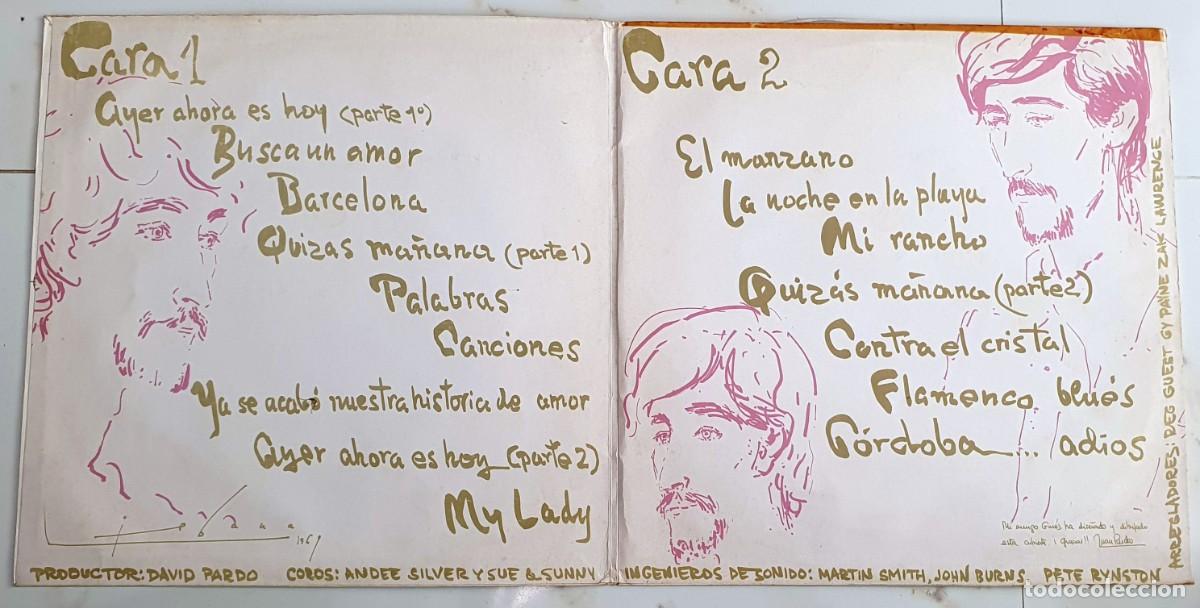 Cara 1
Ayer ahora es hoy (parte 1º)
Busca un amor
Barcelona
Quizas mañana (parte 1)
Palabras
Canciones
Ya se acabó nuestra historia de amor
Ayer ahora es hoy (parte 2)
My Lady
1969
PRODUCTOR: DAVID PARDO COROS: ANDEE SILVER Y SUE & SUNNY
Cara 2
El manzano
La noche en la playa
Mi rancho
Quizás mañana (parte 2)
Contra el cristal
Flamenco blués
Córdoba... adios
Mi amigo Ginés ha diseñado y dibujado
esta cubierta ¡Gracias!! Juan Pardo
INGENIEROS DE SONIDO: MARTIN SMITH, JOHN BURNS, PETE RYNSTON
ARREGLADORES: DES GUEST GY PAYNE ZAK LAWRENCE
todocoleccion